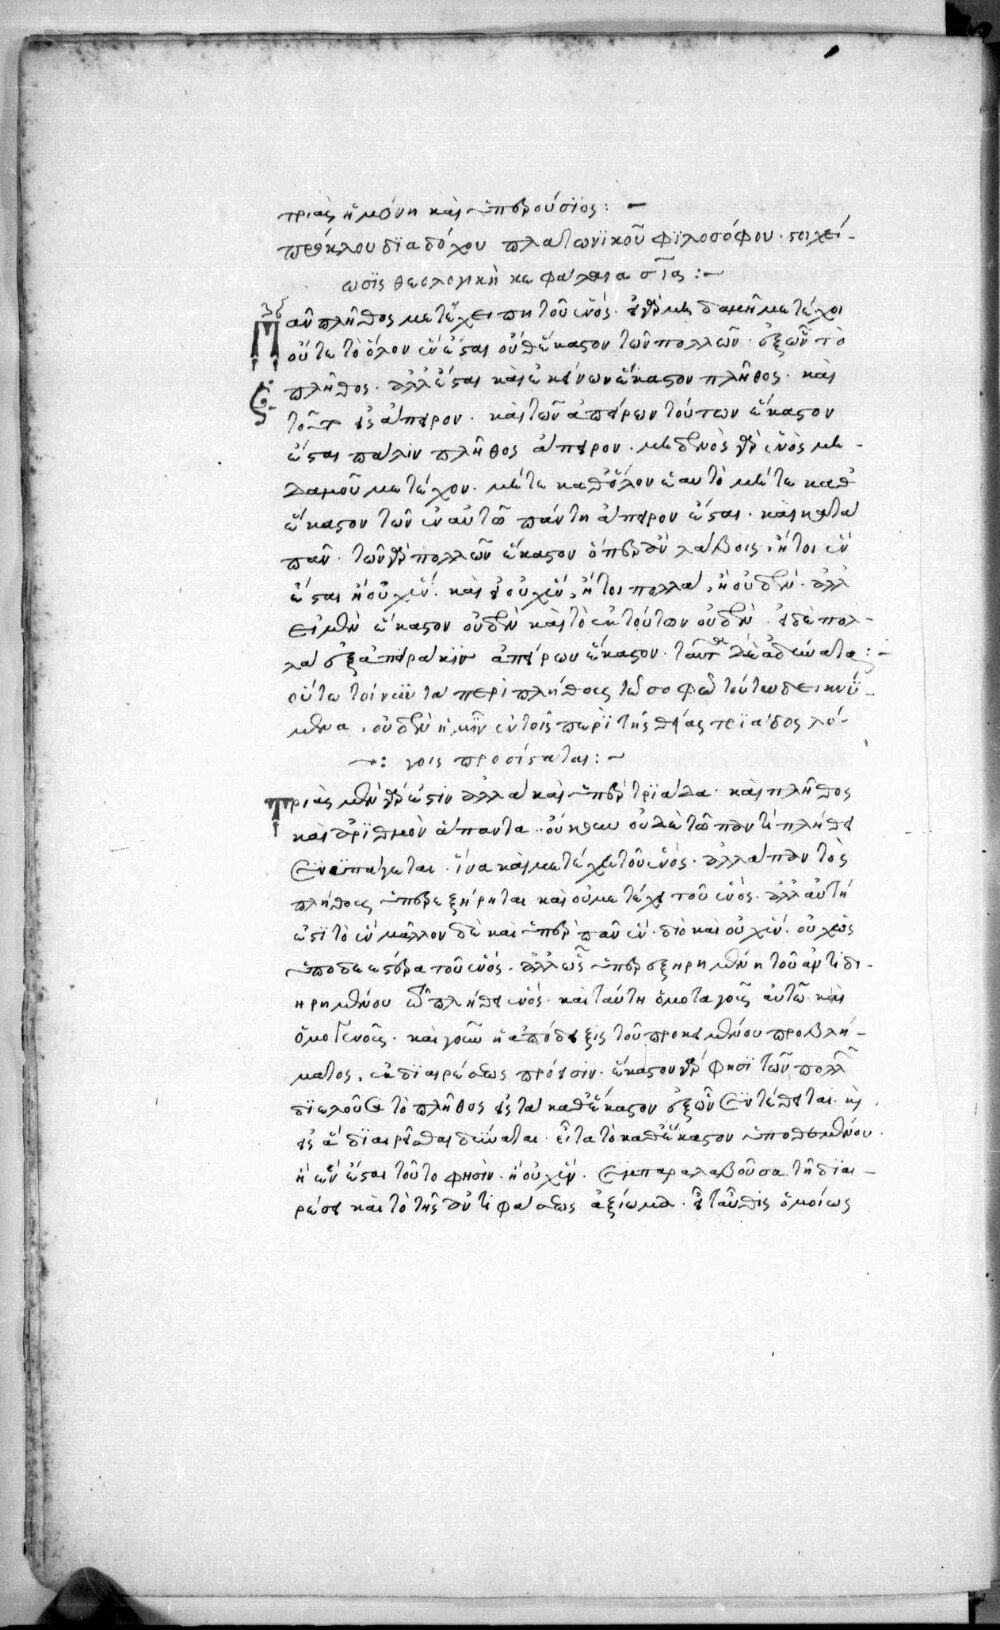 τριὰς ἡ μόνη καὶ ὑπερούσιος: —
πρόκλου διαδόχου πλατωνικοῦ φιλοσόφου· στοιχεί-
ωσις θεολογικὴ κεφάλαια σῑα :—
Πᾶν πλῆθος μετέχει πῃ τοῦ ἑνός· εἰ γὰρ μηδαμῆ μετέχοι
οὔτε τὸ ὅλον ἓν ἔσται οὔθ' ἕκαστον τῶν πολλῶν· ἐξ ὧν τὸ
πλῆθος· ἀλλ' ἔσται καὶ ἐκείνων ἕκαστον πλῆθος· καὶ
τοῦτο εἰς ἄπειρον· καὶ τῶν ἀπείρων τούτων ἕκαστον
ἔσται πάλιν πλῆθος ἄπειρον· μηδενὸς γὰρ ἑνὸς μη-
δαμοῦ μετέχον· μήτε καθ' ὅλον ἑαυτὸ μήτε καθ'
ἕκαστον τῶν ἐν αὐτῷ πάντη ἄπειρον ἔσται· καὶ κατὰ
πᾶν· τῶν γὰρ πολλῶν ἕκαστον ὅπερ ἂν λάβοις, ἤτοι ἓν
ἔσται ἢ οὐχ ἕν· καὶ εἰ οὐχ ἕν, ἤτοι πολλὰ, ἢ οὐδέν· ἀλλ'
εἰ μὲν ἕκαστον οὐδὲν καὶ τὸ ἐκ τούτων οὐδέν· εἰ δὲ πολ-
λὰ ἐξ ἀπειράκις ἀπείρων ἕκαστον· ταῦτα δὲ ἀδύνατα :—
οὕτω τοίνυν τὰ περὶ πλήθους τῷ σοφῷ τούτῳ δεικνύ-
μενα, οὐδὲν ἡμῖν ἐν τοῖς περὶ τῆς θείας τριάδος λό-
—: γοις προσίσταται :—
Τριὰς μὲν γάρ ἐστιν ἀλλὰ καὶ ὑπὲρ τριάδα· καὶ πλῆθος
καὶ ἀριθμὸν ἅπαντα· οὔκουν οὐδὲ τῷ παντὶ πλήθει
συνυπάγεται· ἵνα καὶ μετέχῃ τοῦ ἑνός· ἀλλὰ παντὸς
πλήθους ὑπερεξήρηται καὶ οὐ μετέχει τοῦ ἑνός· ἀλλ' αὐτή
ἐστι τὸ ἓν μᾶλλον δὲ καὶ ὑπὲρ πᾶν ἕν· διὸ καὶ οὐχ ἕν· οὐχ ὡς
ὑποδεεστέρα τοῦ ἑνός· ἀλλ' ὡς ὑπερεξηρημένη τοῦ ἀντιδι-
ῃρημένου τῷ πλήθει ἑνός· καὶ ταύτῃ ὁμοταγοῦς αὐτῷ καὶ
ὁμογενοῦς· καὶ γοῦν ἡ ἀπόδειξις τοῦ προκειμένου προβλή-
ματος, ἐκ διαιρέσεως πρόεισιν· ἕκαστον γάρ φησι τῶν πολλῶν
διελοῦσα τὸ πλῆθος εἰς τὰ καθ' ἕκαστον ἐξ ὧν συντέθειται· καὶ
εἰς ἃ διαιρεῖσθαι δύναται· εἶτα τὸ καθ' ἕκαστον ὑποθεμένου·
ἢ ἓν ἔσται τοῦτο φησὶν· ἢ οὐχ ἕν· συμπαραλαβοῦσα τῇ διαι-
ρέσει καὶ τὸ τῆς ἀντιφάσεως ἀξίωμα· εἶτ' αὖθις ὁμοίως